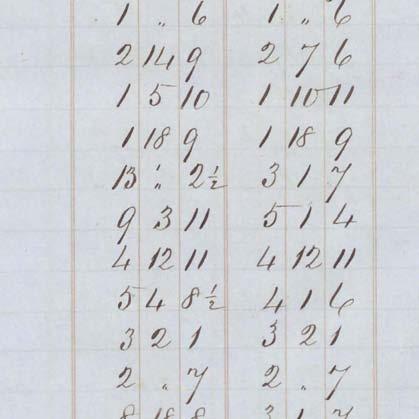 1 " 6 1 " 6
2 14 9 2 7 6
1 5 10 1 10 11
1 18 9 1 18 9
13 " 2½ 3 1 7
9 3 11 5 1 4
4 12 11 4 12 11
5 4 8½ 4 1 6
3 2 1 3 2 1
2 " 7 2 " 7
8 18 8 3 1 7